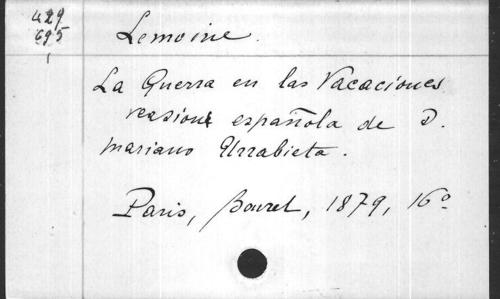 429
695
Lemoine.
La Guerra en las Vacaciones
version española de D.
Mariano Urrabieta.
Paris, Bouret, 1879, 16º